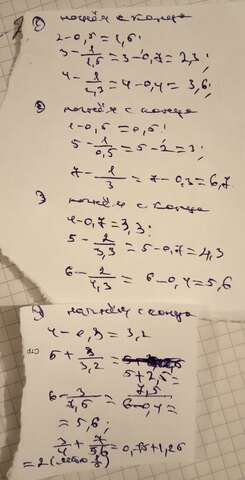 1) начнём с конца
2-0,5=1,5;
3-1/1,5=3-0,7=2,3;
4-1/2,3=4-0,4=3,6;
2) начнём с конца
1-0,5=0,5;
5-1/0,5=5-2=3;
7-1/3=7-0,3=6,7.
3 начнём с конца
4-0,7=3,3;
5-2/3,3=5-0,7=4,3
6-2/4,3=6-0,4=5,6
4) начнём с конца
4-0,8=3,2
5+8/3,2=
5+2,5=
7,5
6-3/7,5=6-0,4=
=5,6;
3/4+7/5,6=0,75+1,25
=2